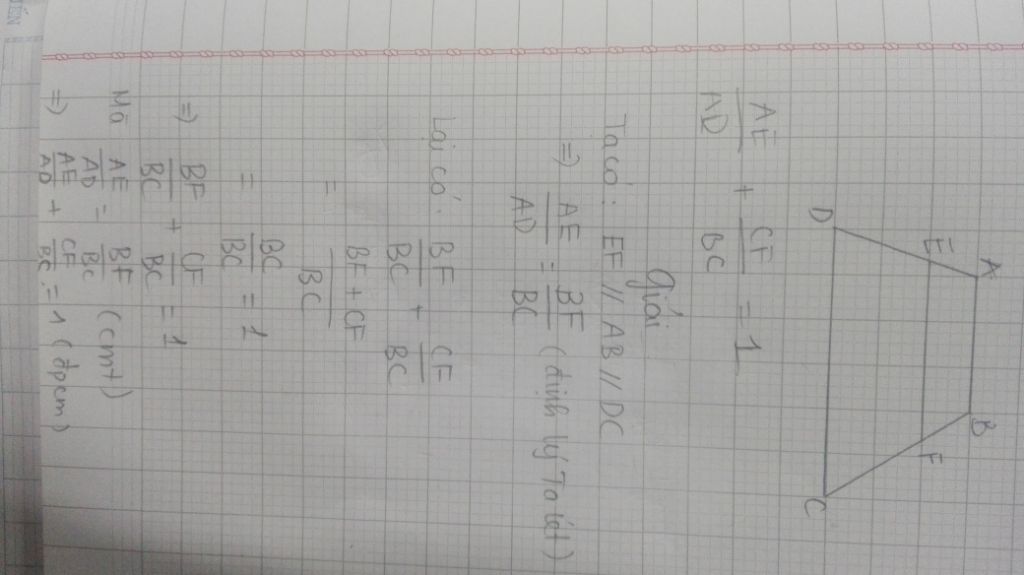 A B
E F
D C
AE/AD + CF/BC = 1
Giải
Ta có: EF // AB // DC
=> AE/AD = BF/BC (định lý Ta lét)
Lại có: BF/BC + CF/BC
= BF + CF/BC
= BC/BC = 1
=> BF/BC + CF/BC = 1
Mà AE/AD = BF/BC (cmt)
=> AE/AD + CF/BC = 1 (đpcm)